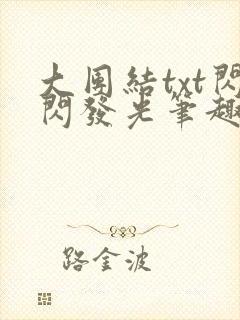 大团結txt閃
閃發光筆趣
路金波